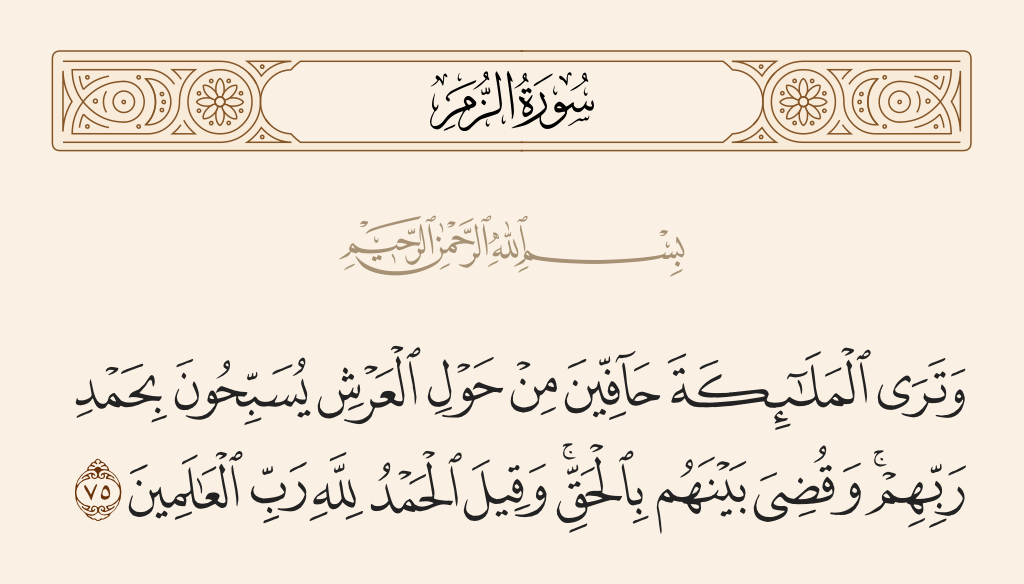 سُورَةُ الزُّمَرِ
بِسْمِ ٱللَّهِ ٱلرَّحْمَٰنِ ٱلرَّحِيمِ
وَتَرَى ٱلْمَلَٰٓئِكَةَ حَآفِّينَ مِنْ حَوْلِ ٱلْعَرْشِ يُسَبِّحُونَ بِحَمْدِ
رَبِّهِمْ ۖ وَقُضِىَ بَيْنَهُم بِٱلْحَقِّ ۚ وَقِيلَ ٱلْحَمْدُ لِلَّهِ رَبِّ ٱلْعَٰلَمِينَ ٧٥